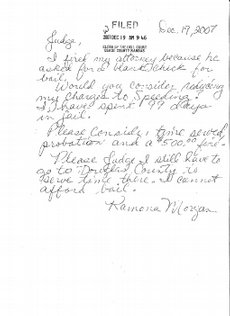 FILED
Dec. 19, 2007
2007 DEC 19 AM 9:46
CLERK OF THE DIST. COURT
Judge,
I fired my attorney because he
asked for a blank check for
bail.
Would you consider reducing
my charges to Speeding.
I have spent 99 days
in jail.
Please Consider time served,
probation and a $500.00 fine.
Please Judge I still have to
go to Douglas County to
serve time there. I cannot
afford bail.
Ramona Morgan